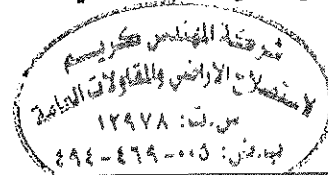 شركة المهندس كريم
لاستصلاح الأراضي والمقاولات العامة
س.ت: ١٢٩٧٨
ب.ض: ٥٠٠-٤٦٩-٤٩٤